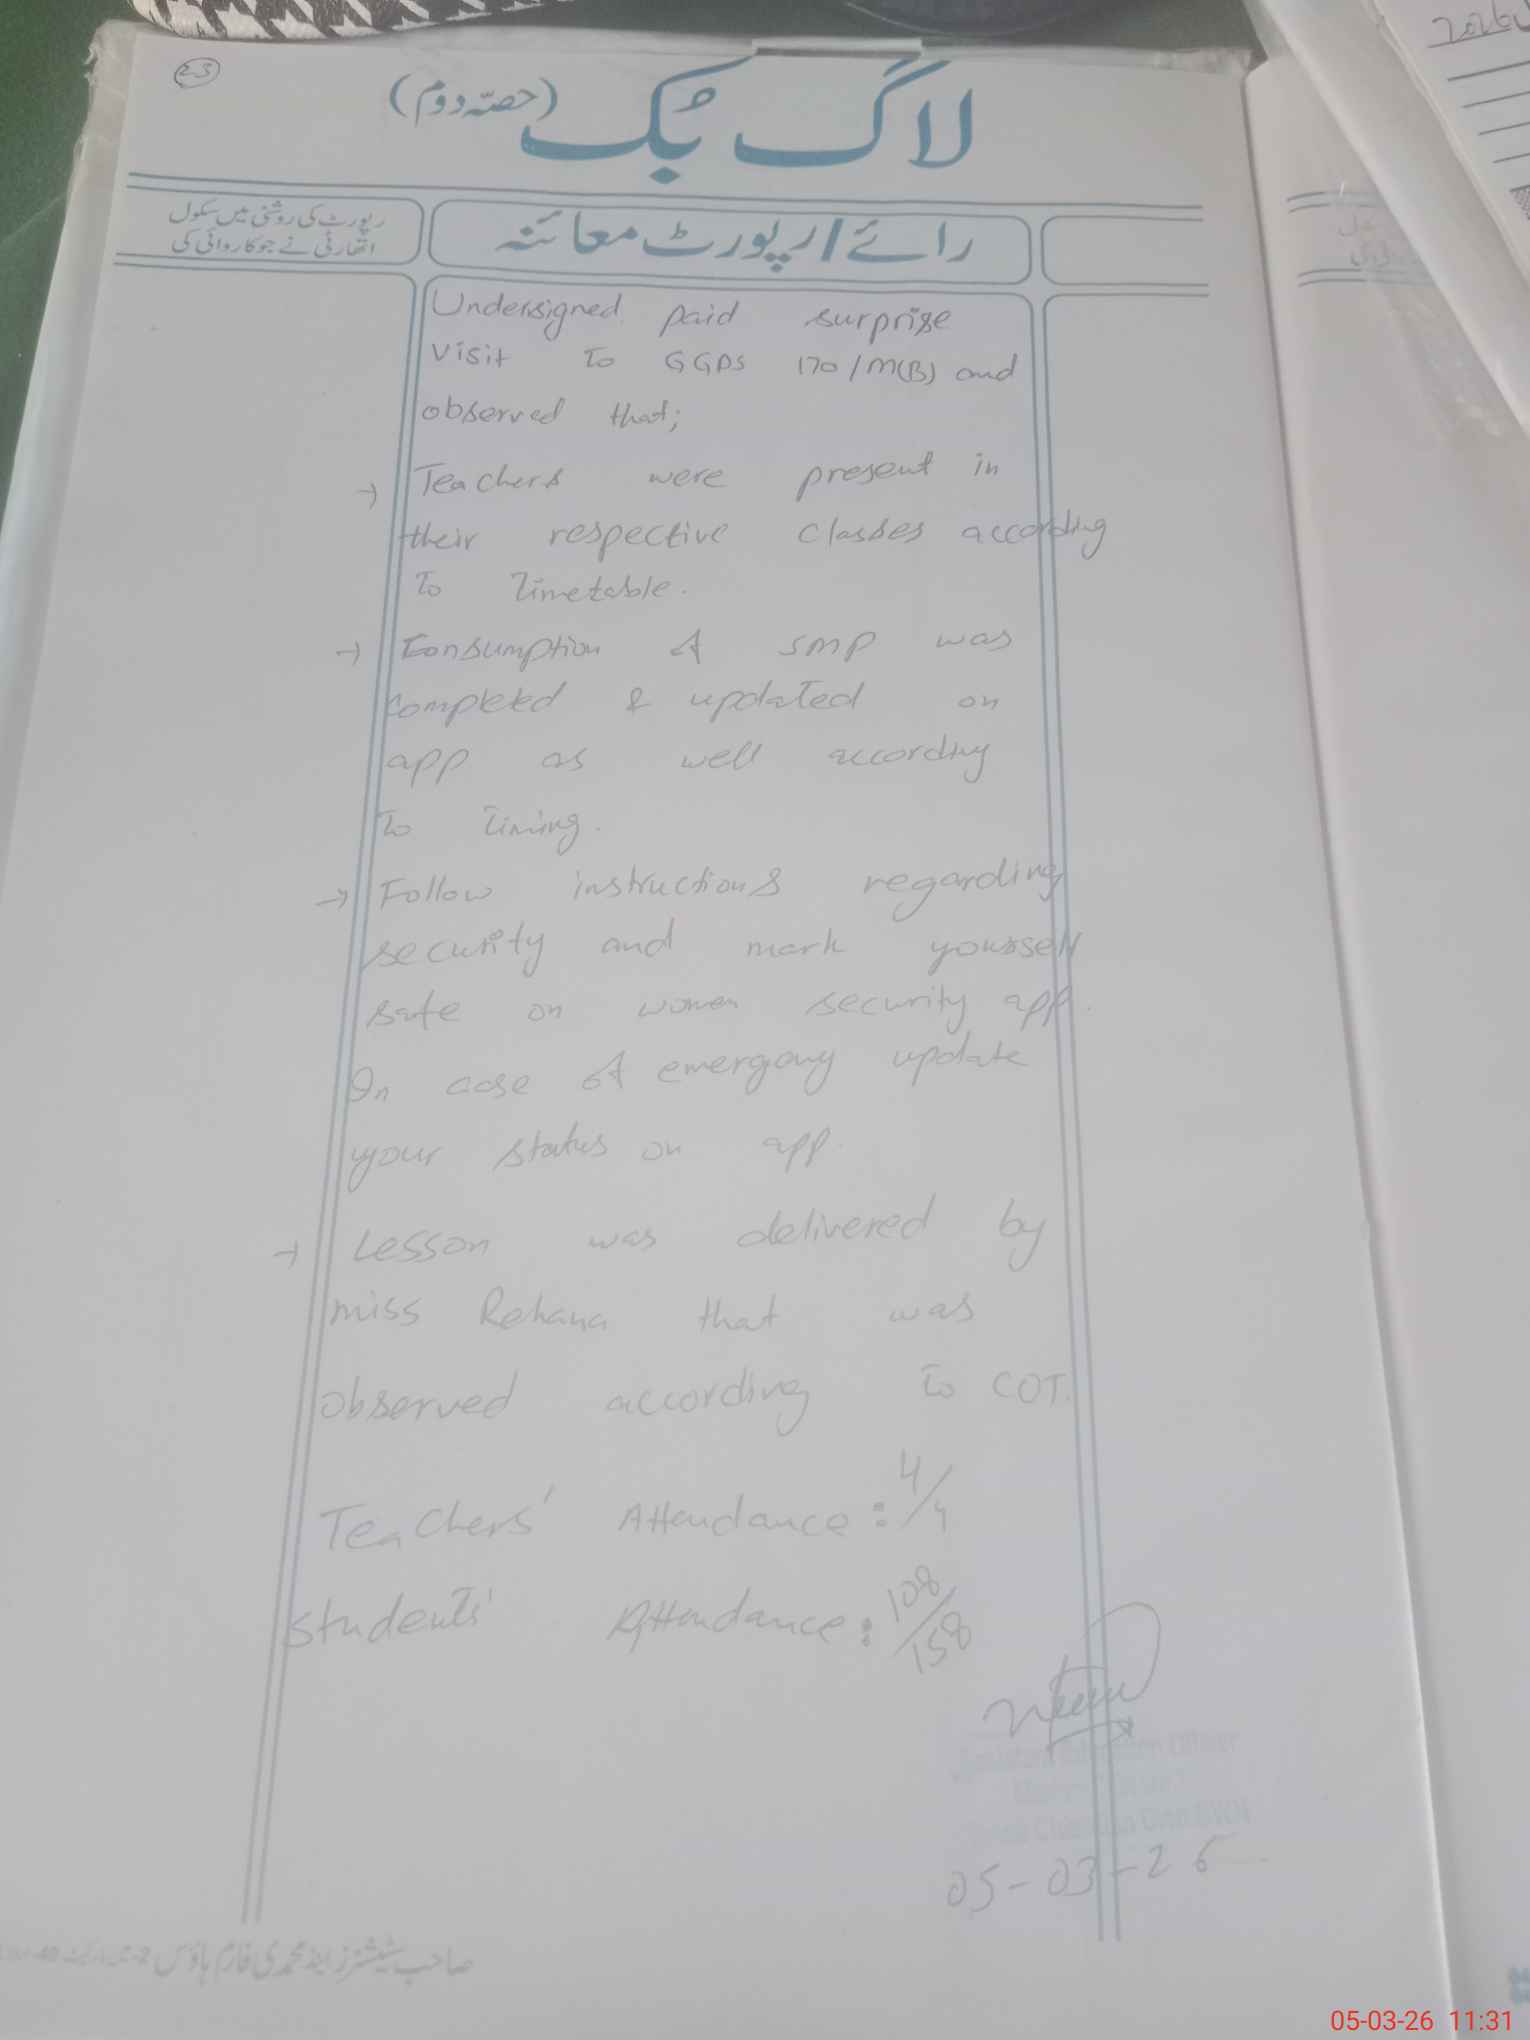 23
لاگ بک (حصّہ دوم)
رائے/رپورٹ معائنہ
رپورٹ کی روشنی میں سکول
اتھارٹی نے جو کاروائی کی
Undersigned paid surprise
visit to GGPS 170/M(B) and
observed that;
→ Teachers were present in
their respective classes according
to timetable.
→ Consumption of SMP was
completed & updated on
app as well according
to timing.
→ Follow instructions regarding
security and mark yourself
safe on women security app.
In case of emergency update
your status on app.
→ Lesson was delivered by
miss Rehana that was
observed according to COT.
Teachers' Attendance: 4/4
Students' Attendance: 108/158
Assistant Education Officer
05-03-26
صاحب سٹیشنرز اینڈ محمدی فارم ہاؤس
2026
05-03-26 11:31